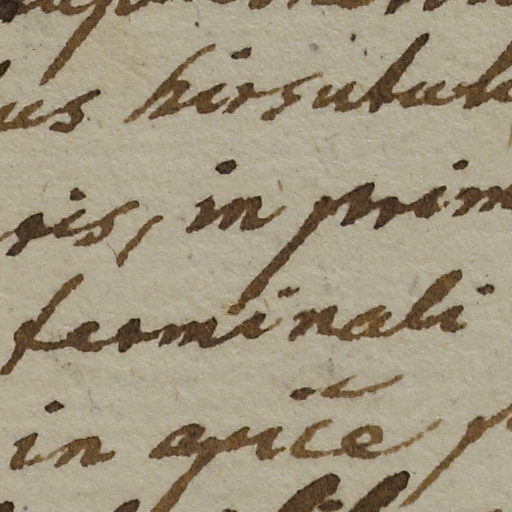 us hirsutul
ris, in prim
terminali
in apice p